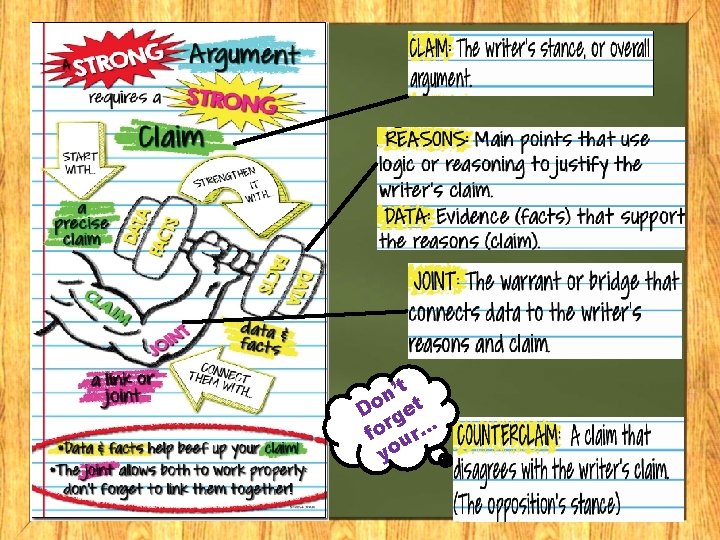 A STRONG Argument
requires a STRONG
Claim
START
WITH...
STRENGTHEN
IT
WITH...
a
precise
claim
DATA
FACTS
FACTS
DATA
CLAIM
JOINT
data &
facts
a link or
joint
CONNECT
THEM WITH...
•Data & facts help beef up your claim!
•The joint allows both to work properly;
don't forget to link them together!
CLAIM: The writer's stance, or overall
argument.
REASONS: Main points that use
logic or reasoning to justify the
writer's claim.
DATA: Evidence (facts) that support
the reasons (claim).
JOINT: The warrant or bridge that
connects data to the writer's
reasons and claim.
Don't
forget
your...
COUNTERCLAIM: A claim that
disagrees with the writer's claim.
(The opposition's stance)